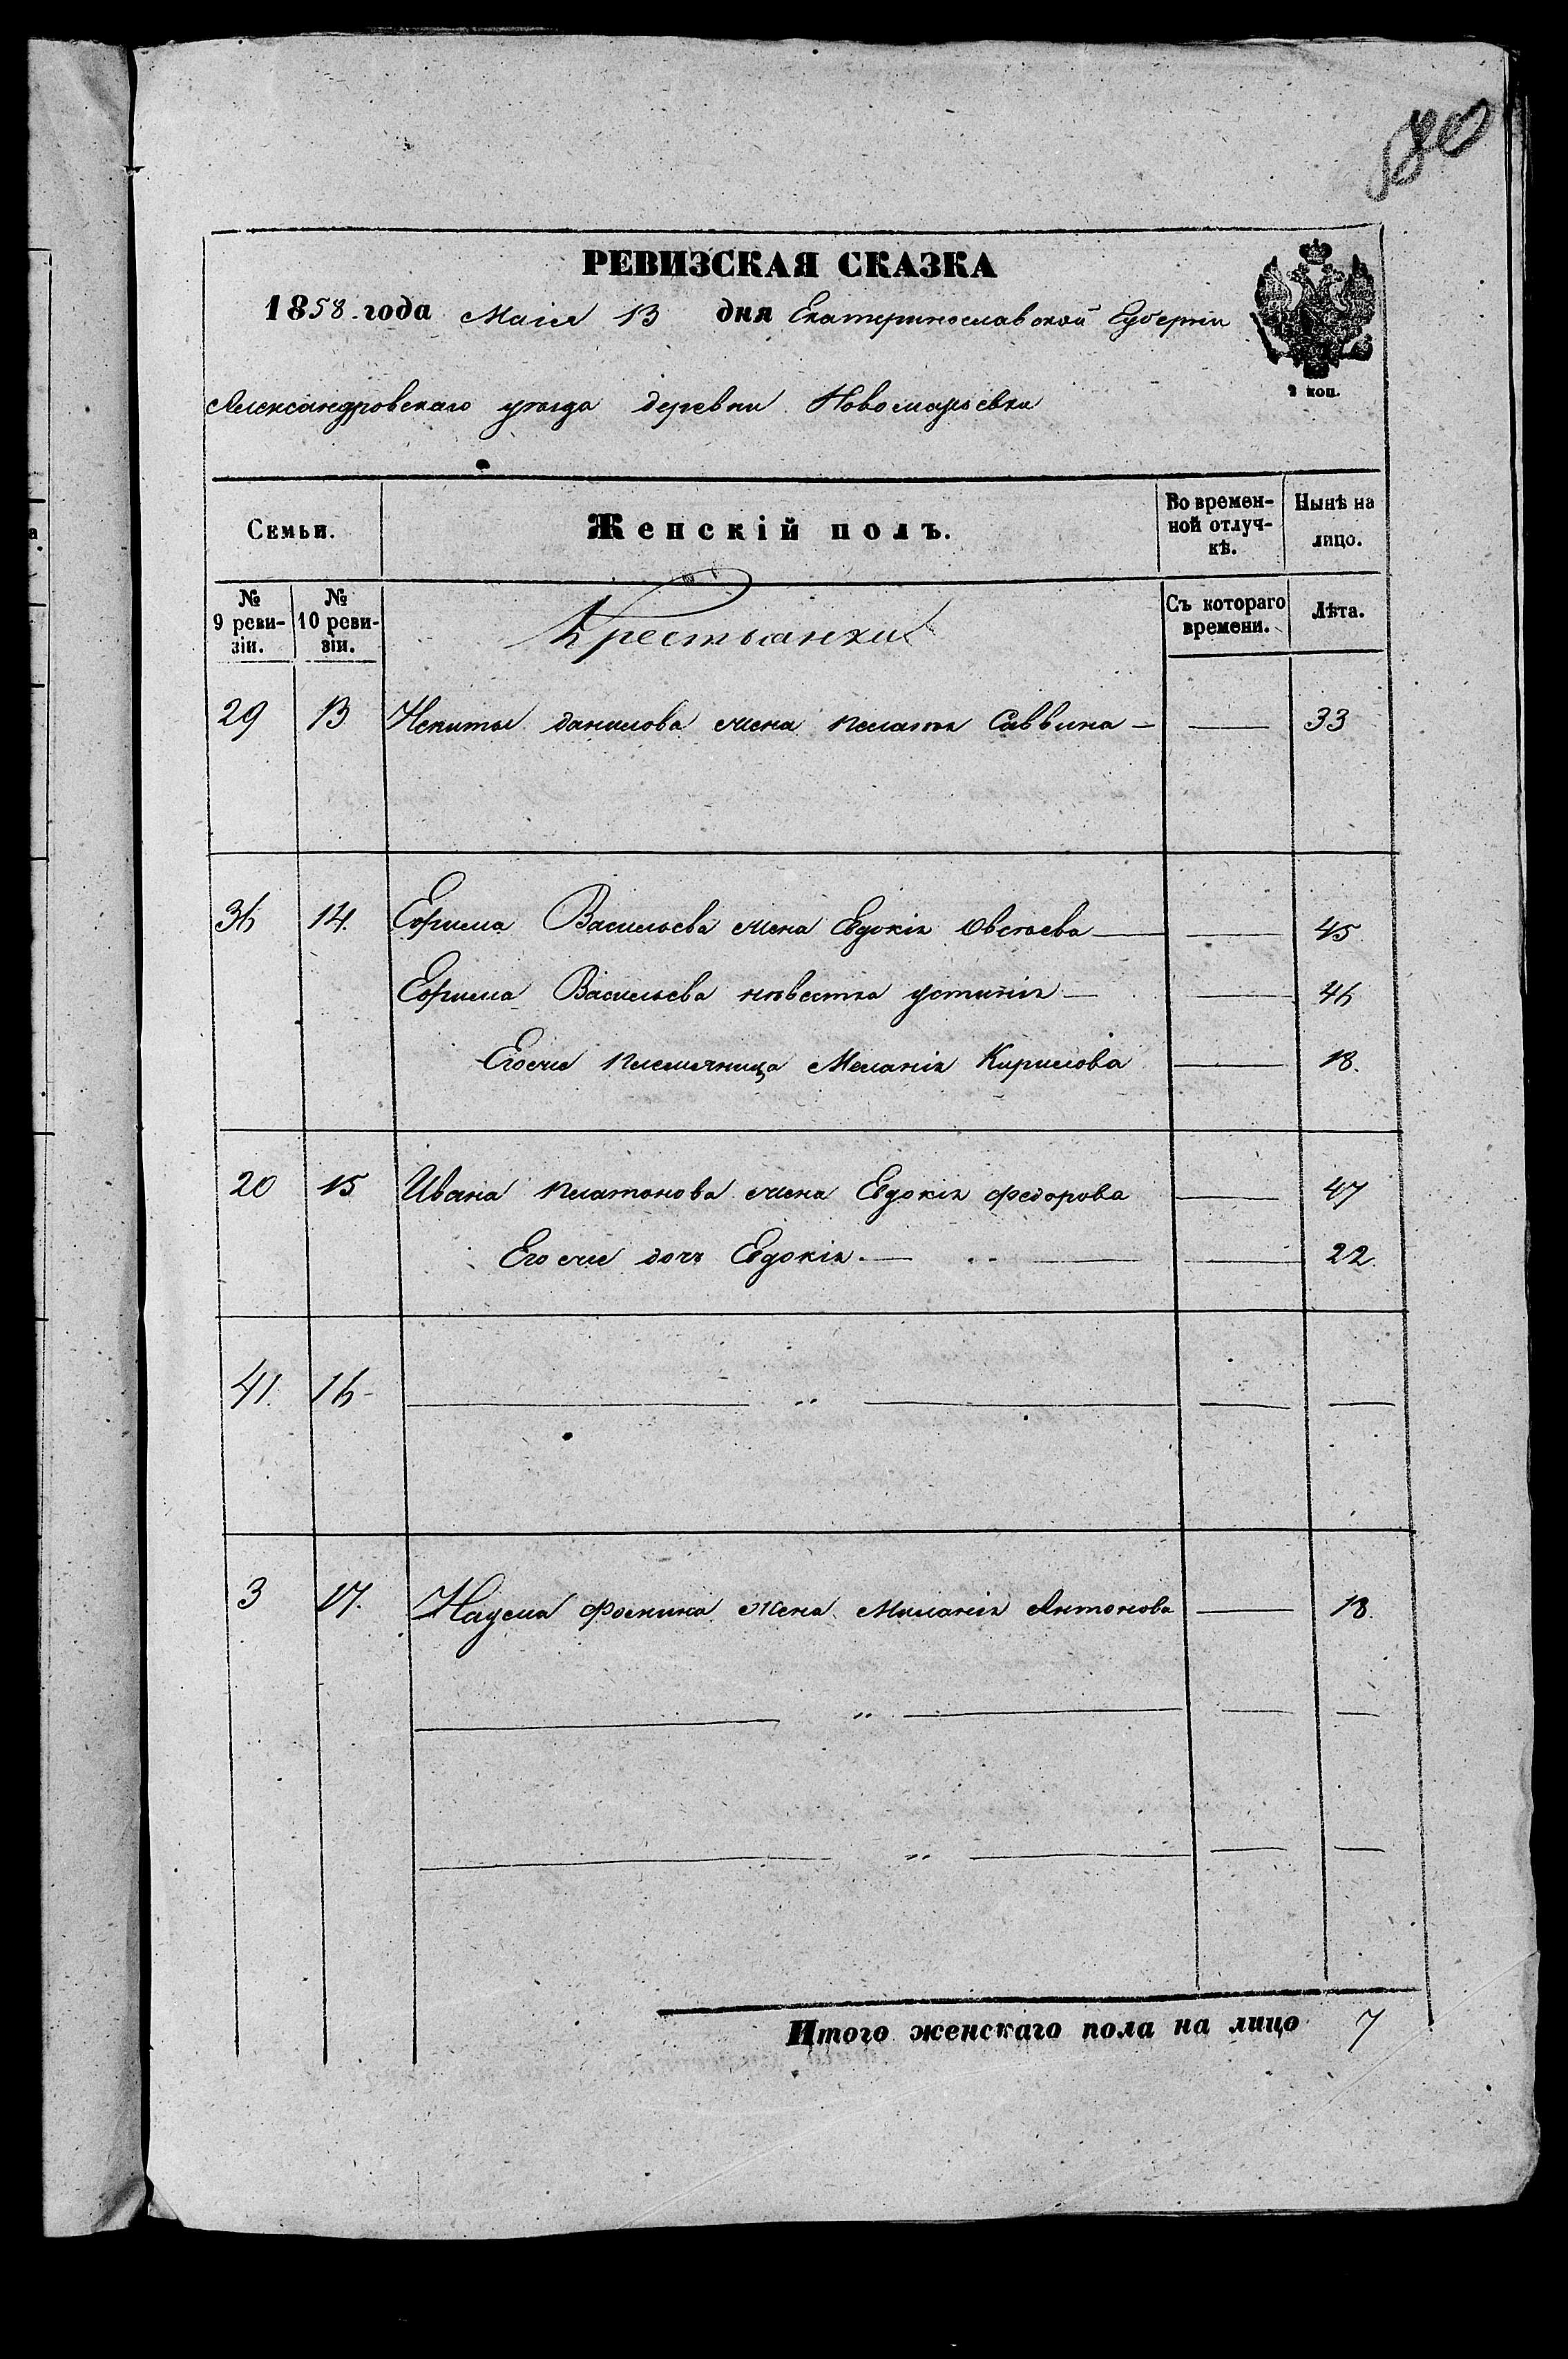 80
РЕВИЗСКАЯ СКАЗКА
1858 года Маія 13 дня Екатеринославской Губерніи
2 коп.
Александровскаго уѣзда деревни Новомарьевки
Семьи.
Женскій полъ.
Во времен-
ной отлуч-
кѣ.
Нынѣ на
лицо.
№
9 реви-
зіи.
№
10 реви-
зіи.
Крестьянки
Съ котораго
времени.
Лѣта.
29 13 Никиты данилова жена Пелагія Саввина — — 33
36 14. Ефима Васильева жена Евдокія — — 45
Ефима Васильева невестка устинія — — 46
Его же племянница Меланія Кирилова — 18.
20 15 Ивана Платонова жена Евдокія федорова — 47
Его же дочь Евдокія. — — — 22.
41. 16 — „ — — —
3 17. Наума фомина жена Миланія Антонова — 18.
— „ — — —
— „ — — —
Итого женскаго пола на лицо 7